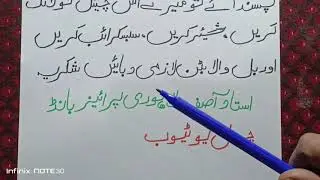 پسند آئے تو میرے اس چینل کو لائک
کریں، شیئر کریں، سبسکرائب کریں
اور بل والا بٹن لازمی دبائیں شکریہ
استاد آصف پرائیز بانڈ
چینل یوٹیوب
Infinix NOTE 30